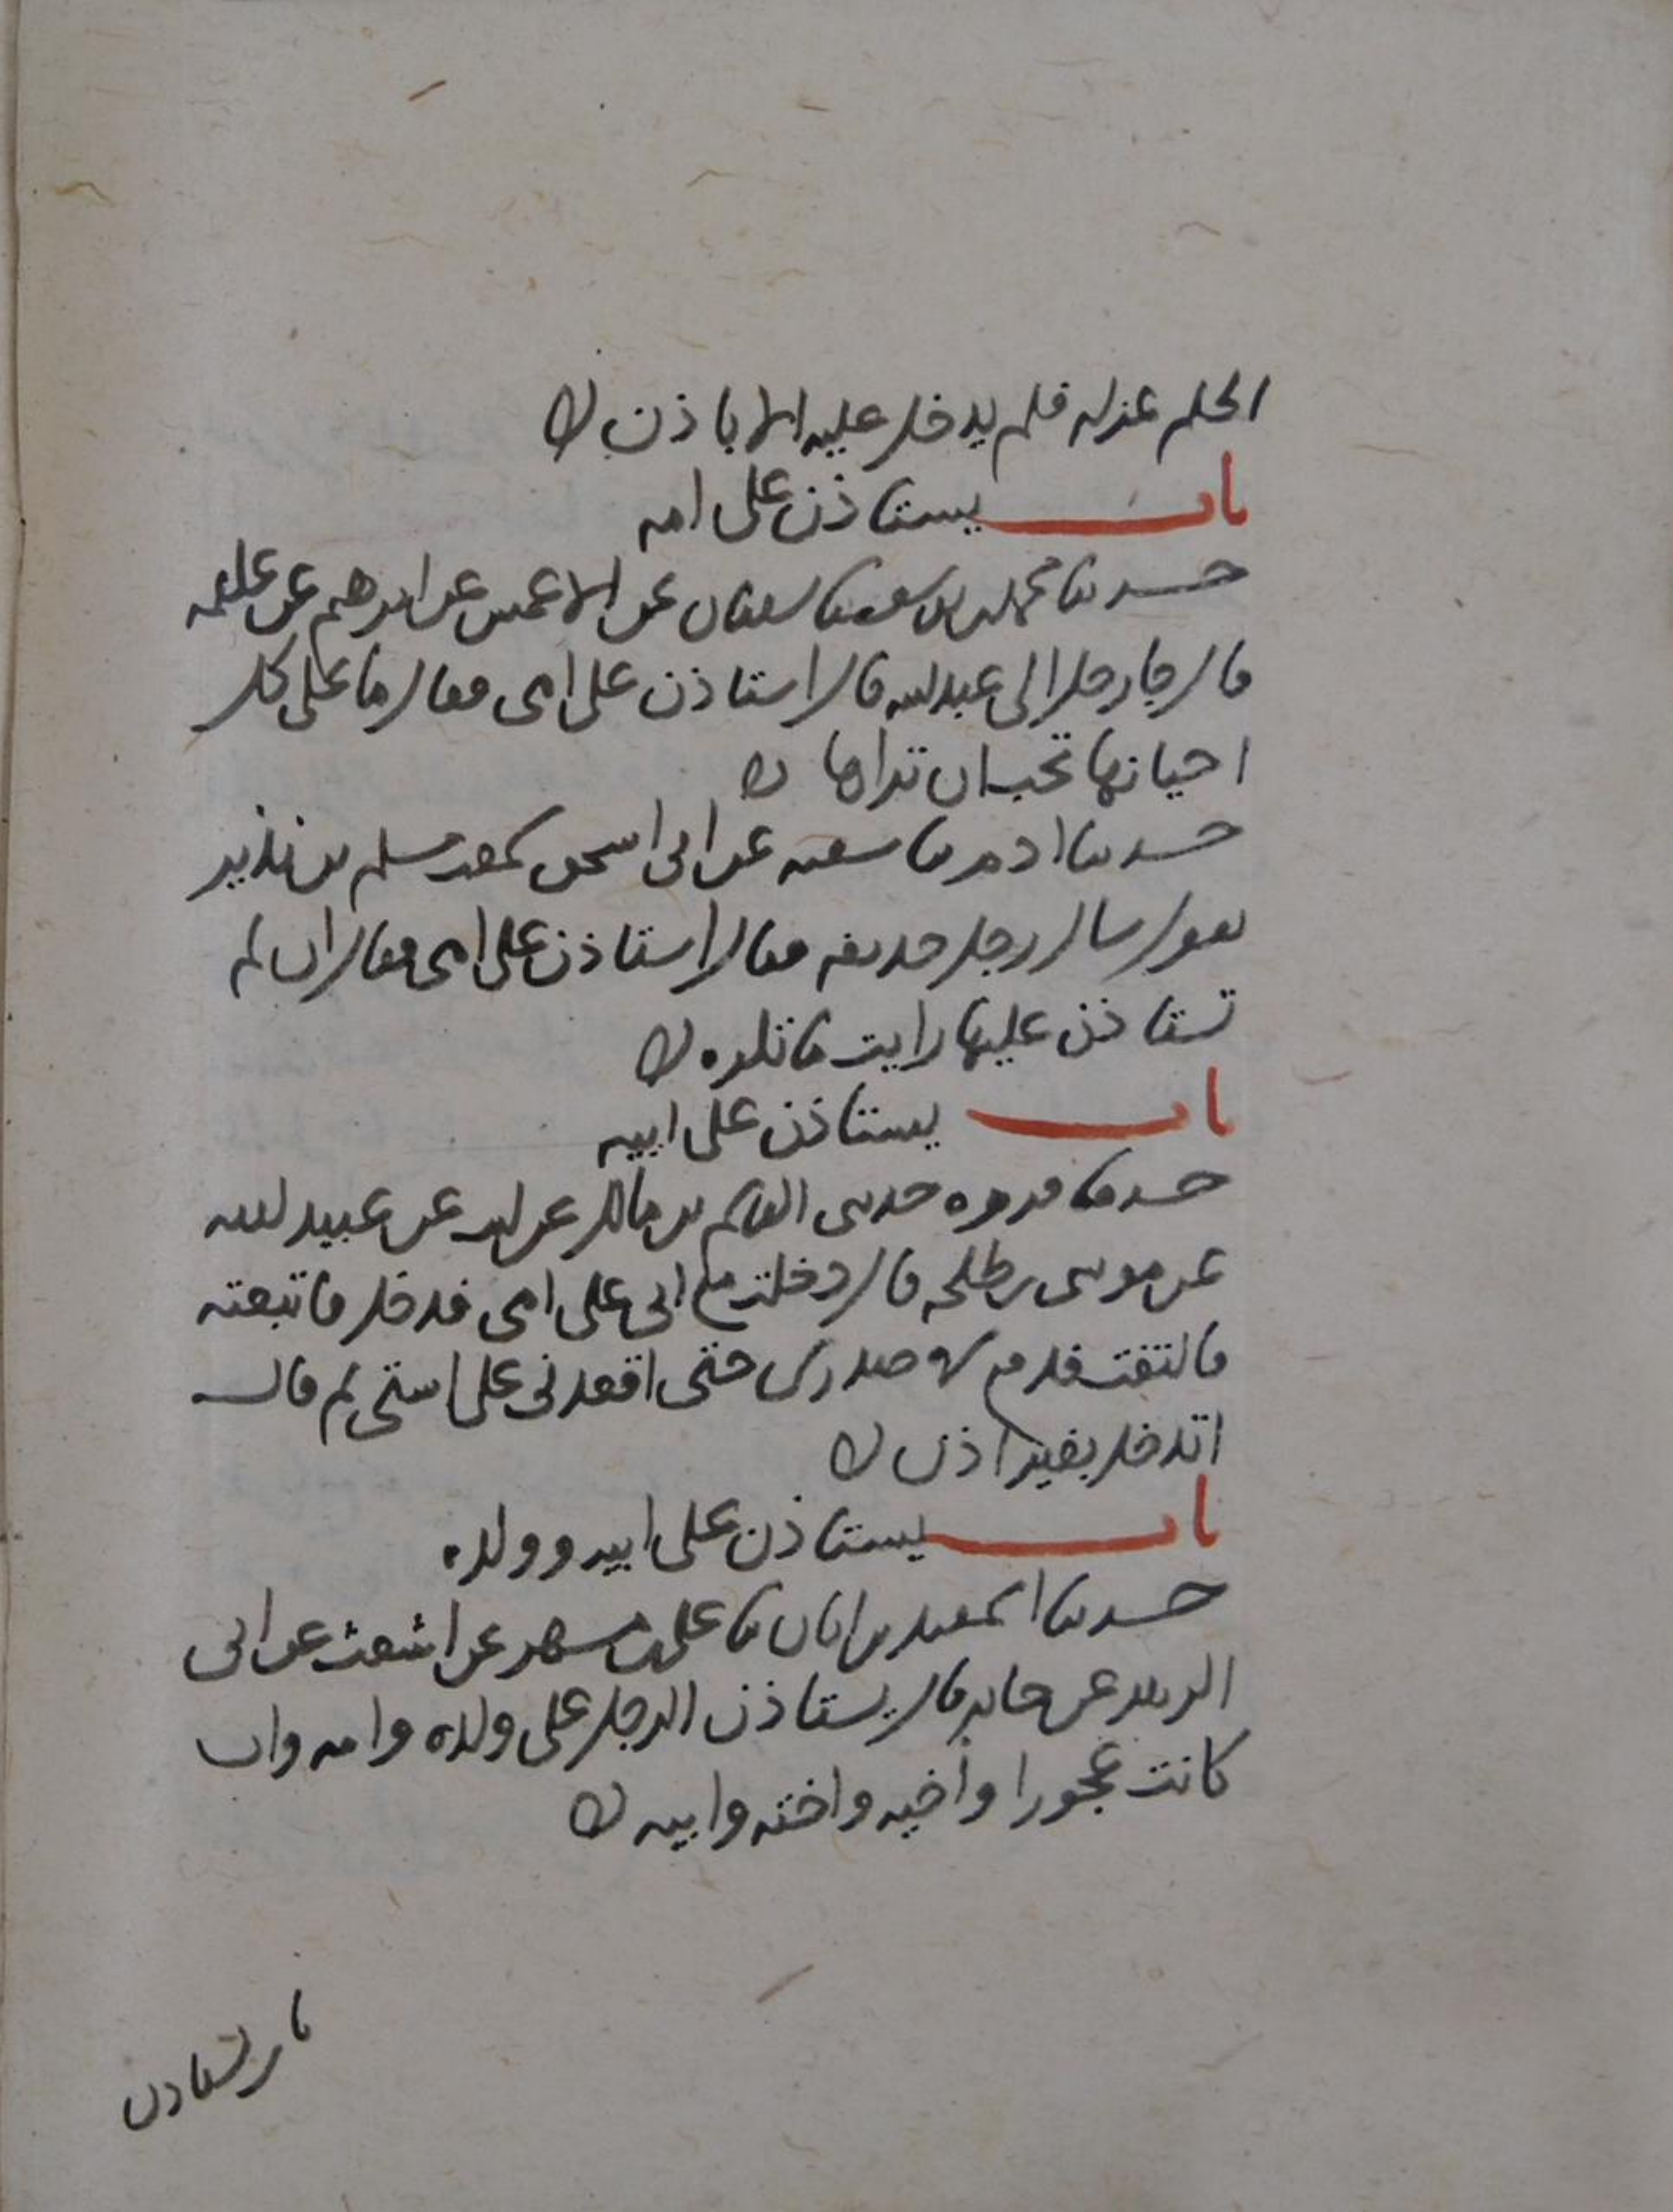 الحلم عزله فلم يدخل عليه الا باذن
باب يستاذن على امه
حدثنا محمد بن يوسف ثنا سفيان عن الاعمش عن ابرهيم عن علقمه
قال جا رجل الى عبد الله قال استاذن على امى فقال ما على كل
احيانها تحب ان تراها
حدثنا ادم ثنا شعبه عن ابى اسحق سمعت مسلم بن نذير
يقول سال رجل حذيفه فقال استاذن على امى فقال ان لم
تستاذن عليها رايت ما تكره
باب يستاذن على ابيه
حدثنا فروه حدثنى القاسم بن مالك عن ليث عن عبيد الله
عن موسى بن طلحه قال دخلت مع ابى على امى فدخل فاتبعته
فالتفت فدفع فى صدرى حتى اقعدنى على استى ثم قال
اتدخل بغير اذن
باب يستاذن على ابيه وولده
حدثنا اسمعيل بن ابان ثنا على بن مسهر عن اشعث عن ابى
الزبير عن جابر قال يستاذن الرجل على ولده وامه وان
كانت عجوزا وأخيه واخته وابيه
باب يستاذن